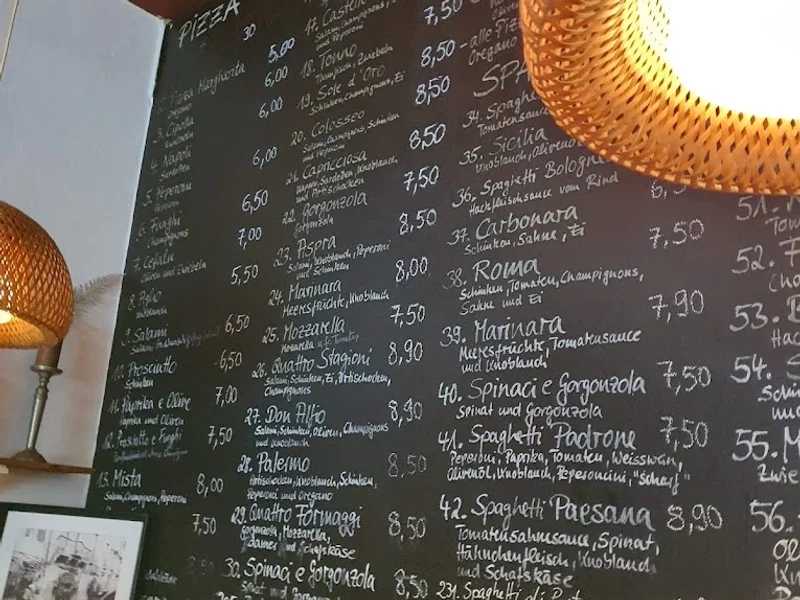 PIZZA
30
5,00
2. Pizza Margherita
6,00
Oregano
3. Cipolla
6,00
Zwiebeln
4. Napoli
6,00
Sardellen
5. Peperoni
6,50
6. Funghi
7,00
Champignons
7. Cefalu
5,50
8. Aglio
Knoblauch
9. Salami
6,50
10. Prosciutto
6,50
Schinken
11. Paprika e Olive
7,00
Paprika und Oliven
12. Prosciutto e Funghi
7,50
13. Mista
8,00
Salami, Champignons, Peperoni
7,50
17. Castello
7,50
Salami, Champignons,
und Peperoni
18. Tonno
8,50
Thunfisch, Zwiebeln
19. Sole d'Oro
8,50
Schinken, Champignons, Ei
20. Colosseo
8,50
Salami, Champignons, Schinken
und Peperoni
21. Capricciosa
7,50
Kapern, Sardellen, Knoblauch
und Artischocken
22. Gorgonzola
8,50
Gorgonzola
23. Aspra
8,00
Salami, Knoblauch, Peperoni
und Schinken
24. Marinara
7,50
Meeresfrüchte, Knoblauch
25. Mozzarella
8,90
26. Quattro Stagioni
8,90
Salami, Schinken, Ei, Artischocken,
Champignons
27. Don Alfio
8,50
Salami, Schinken, Oliven, Champignons
und Knoblauch
28. Palermo
Artischocken, Knoblauch, Schinken,
Peperoni und Oregano
29. Quattro Formaggi
8,50
Gorgonzola, Mozzarella,
und Schafskäse
30. Spinaci e Gorgonzola
8,50
- alle Piz
Oregano
SPA
34. Spaghe
Tomatensauce
35. Sicilia
Knoblauch, Oliven
36. Spaghetti Bologne
Hackfleischsauce vom Rind
37. Carbonara
7,50
Schinken, Sahne, Ei
38. Roma
7,90
Schinken, Tomaten, Champignons,
Sahne und Ei
39. Marinara
Meeresfrüchte, Tomatensauce
und Knoblauch
7,50
40. Spinaci e Gorgonzola
Spinat und Gorgonzola
7,50
41. Spaghetti Padrone
Peperoni, Paprika, Tomaten, Weisswein,
Olivenöl, Knoblauch, Peperoncini, "scharf"
42. Spaghetti Paesana
8,90
Tomatensahnesauce, Spinat,
Hühnchenfleisch, Knoblauch
und Schafskäse
231. Spaghetti
51.
52.
53.
54.
55.
56.